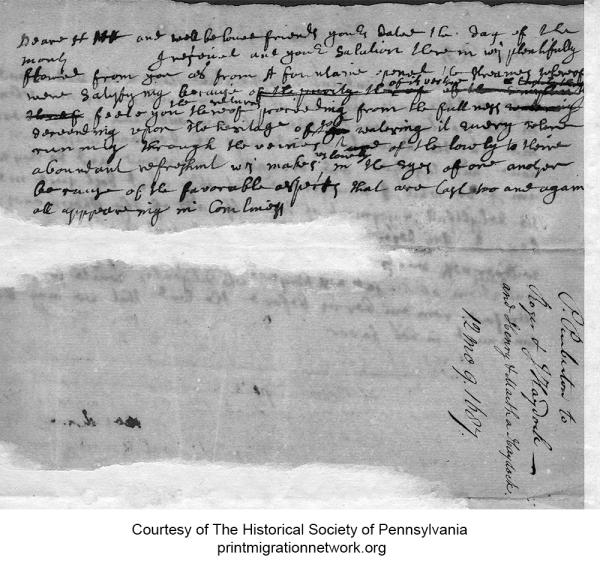 Deare H and welbeloued friends yours Dated the day of the
month I receiued and your Salution therein wch plentifully
flowed from you as from A fountaine opened the streames whereof
were satisfying because of the purity
feeleing the returnes thereof proceeding from the fullness
descending upon the heritage of god watering it euery where
running through the veines of the lowly to theire
aboundant refreshmt wch makes us louely in the Eyes of one another
because of the favorable aspects that are cast too and again
all appeareing in Comliness
P. Pemberton to
Roger & J Haydock
and Henry & Martha Haydock.
12 mo 9. 1687.
Courtesy of The Historical Society of Pennsylvania
printmigrationnetwork.org